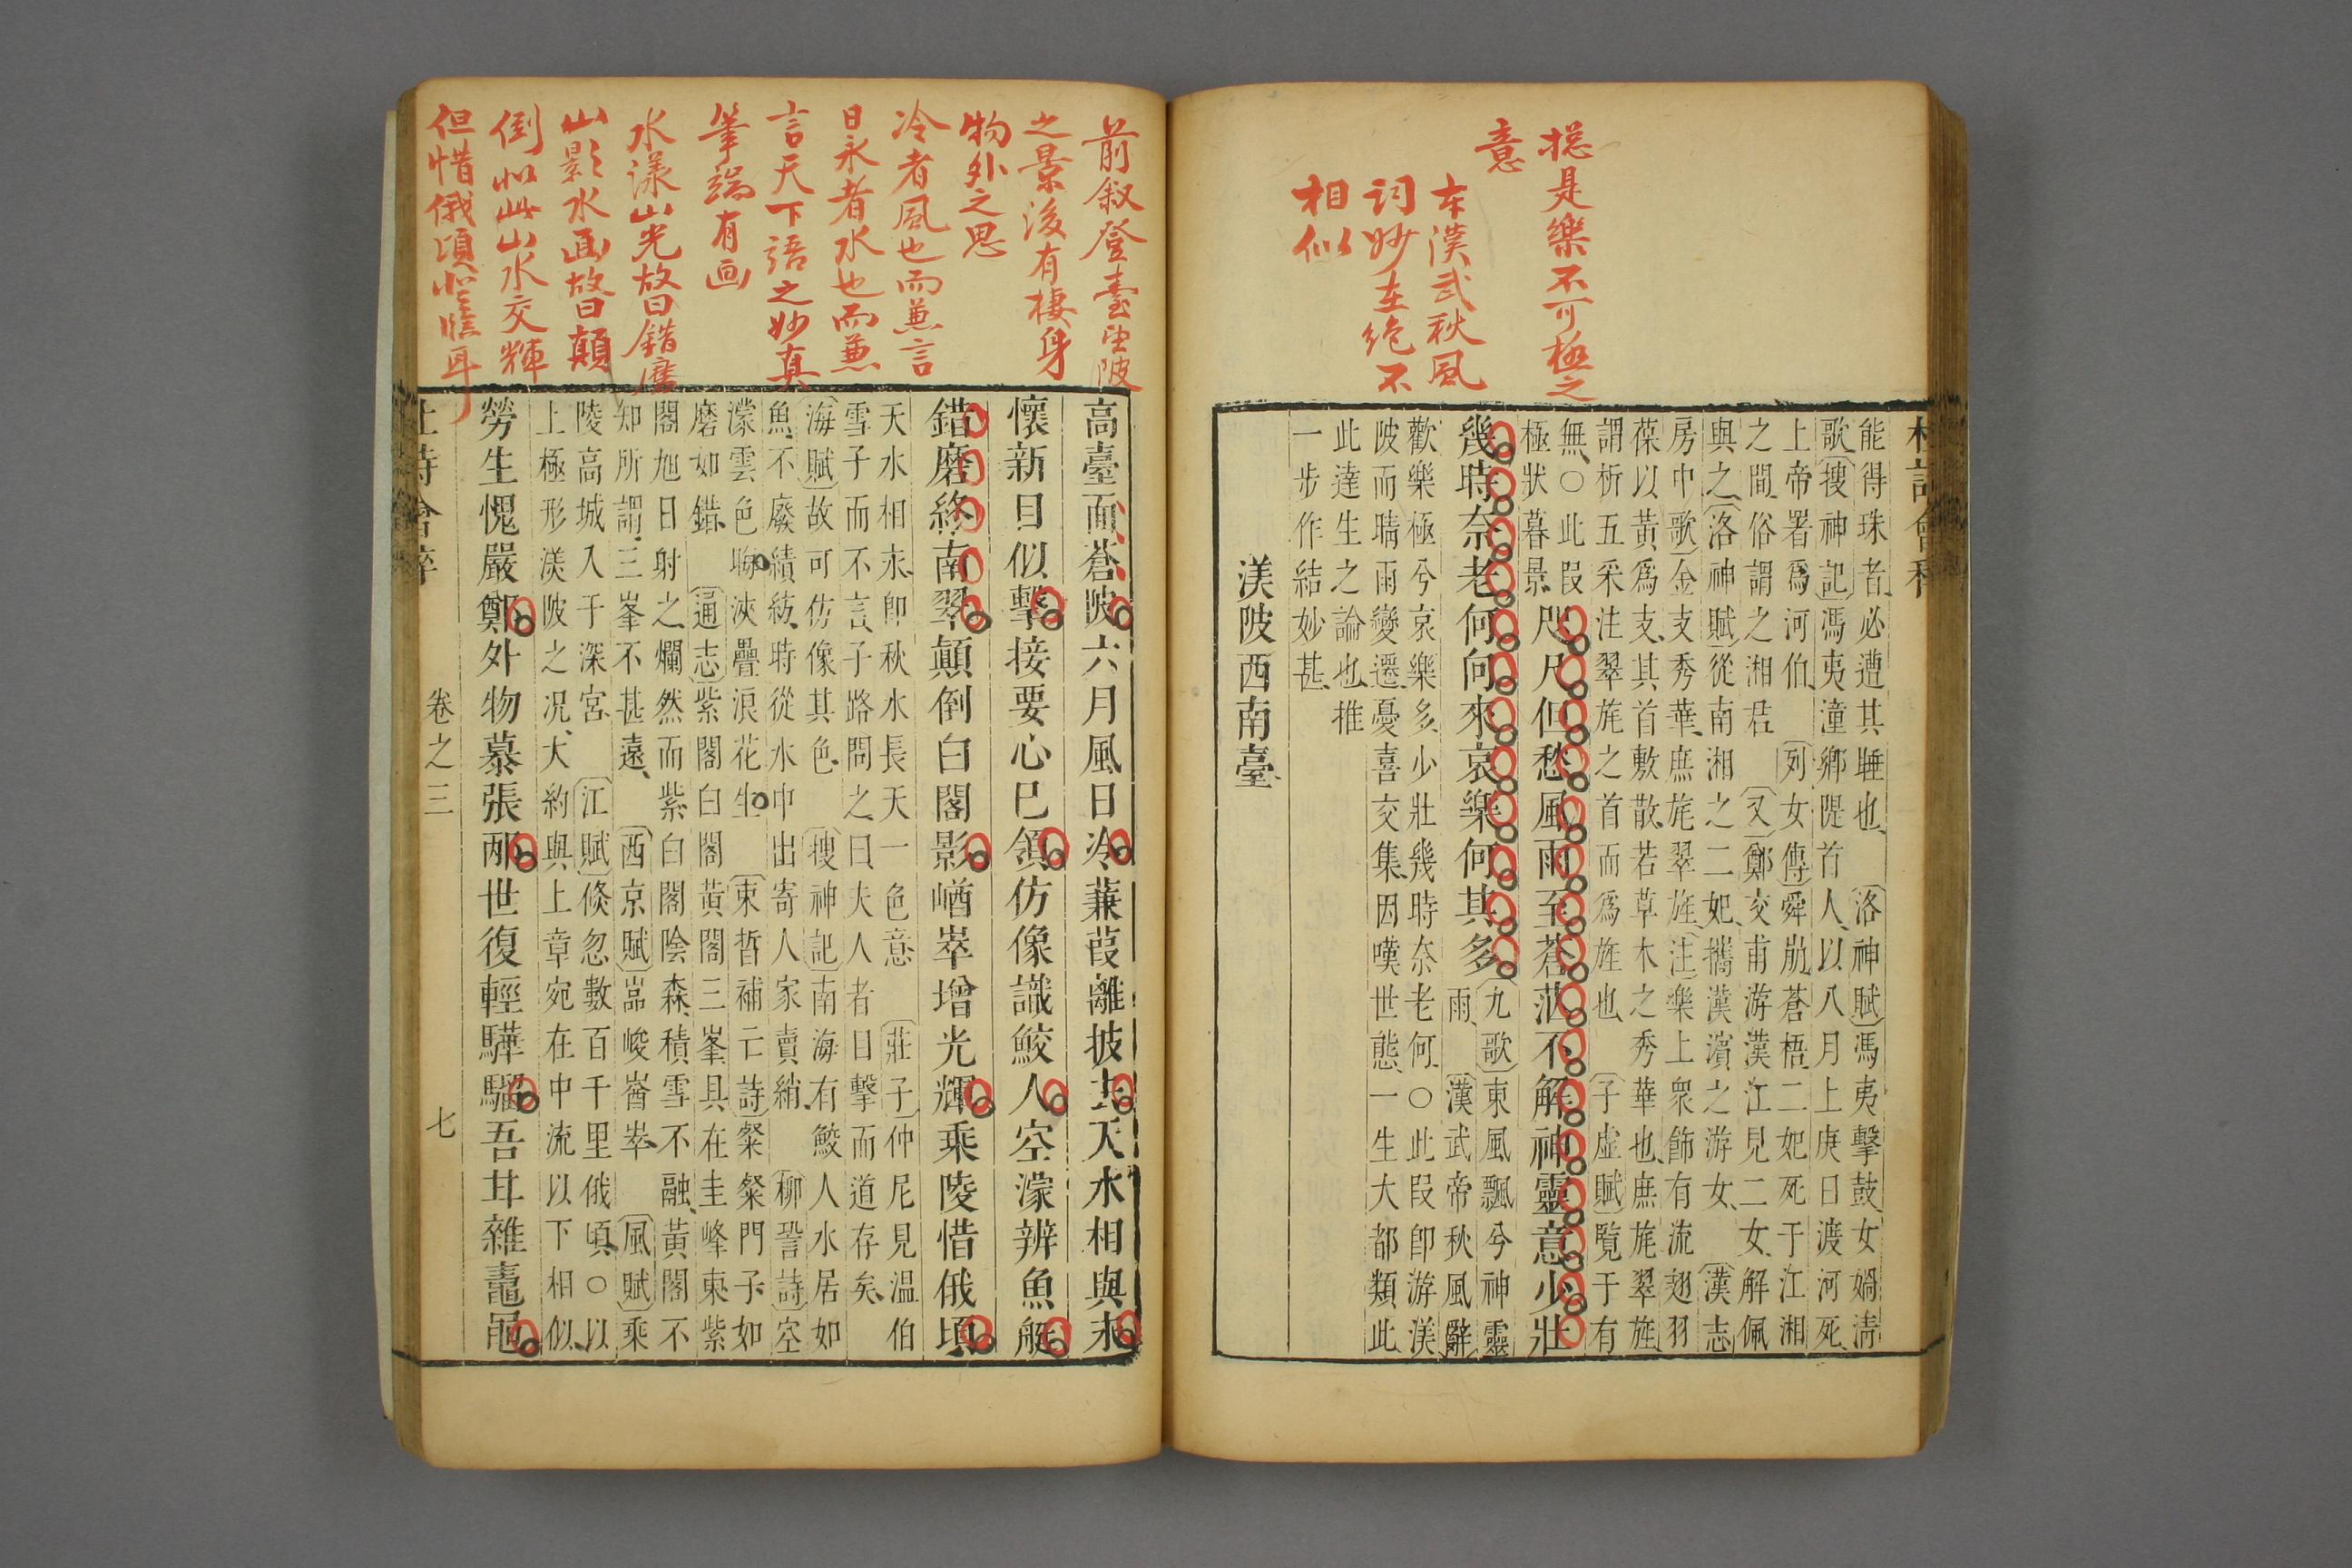 揔是樂不可極之
意
本漢武秋風
詞妙在絶不
相似
能得珠者必遭其睡也〔洛神賦〕馮夷擊鼓女媧清
歌〔搜神記〕馮夷潼鄉隄首人以八月上庚日渡河死
上帝署爲河伯〔列女傳〕舜崩蒼梧二妃死于江湘
之間俗謂之湘君〔又〕鄭交甫游漢江見二女解佩
與之〔洛神賦〕從南湘之二妃攜漢濱之游女〔漢志
房中歌〕金支秀華庶旄翠旌〔注〕樂上衆飾有流翅羽
葆以黃爲支其首敷散若草木之秀華也庶旄翠旌
謂析五采注翠旄之首而爲旌也〔子虛賦〕覽于有
無○此段
極狀暮景
咫尺但愁風雨至蒼茫不解神靈意少壯
幾時奈老何向來哀樂何其多
〔九歌〕東風飄兮神靈
雨〔漢武帝秋風辭〕
歡樂極兮哀樂多少壯幾時奈老何○此段即游渼
陂而晴雨變遷憂喜交集因嘆世態一生大都類此
此達生之論也推
一步作結妙甚
渼陂西南臺
前叙登臺望陂
之景後有棲身
物外之思
冷者風也而兼言
日永者水也而兼
言天下語之妙真
筆端有画
水漾山光故曰錯磨
山影水画故曰顛
倒如此山水交輝
但惜俄頃耳
高臺面蒼陂六月風日冷蒹葭離披去天水相與永
懷新目似擊接要心已領仿像識鮫人空濛辨魚艇
錯磨終南翠顛倒白閣影崷崒增光輝乘陵惜俄頃
天水相永即秋水長天一色意〔莊子〕仲尼見溫伯
雪子而不言子路問之曰夫人者目擊而道存矣
〔海賦〕故可仿像其色〔搜神記〕南海有鮫人水居如
魚不廢績紡時從水中出寄人家賣綃〔柳詧詩〕空
濛雲色晦浹疊浪花生〔束晳補亡詩〕粲粲門子如
磨如錯〔通志〕紫閣白閣黃閣三峯具在圭峰東紫
閣旭日射之爛然而紫白閣陰森積雪不融黃閣不
知所謂三峯不甚遠〔西京賦〕嵓峻崷崒〔風賦〕乘
陵高城入于深宮〔江賦〕倏忽數百千里俄頃○以
上極形渼陂之况大約與上章宛在中流以下相似
勞生愧嚴鄭外物慕張邴世復輕驊騮吾甘雜鼃黽
卷之三
七